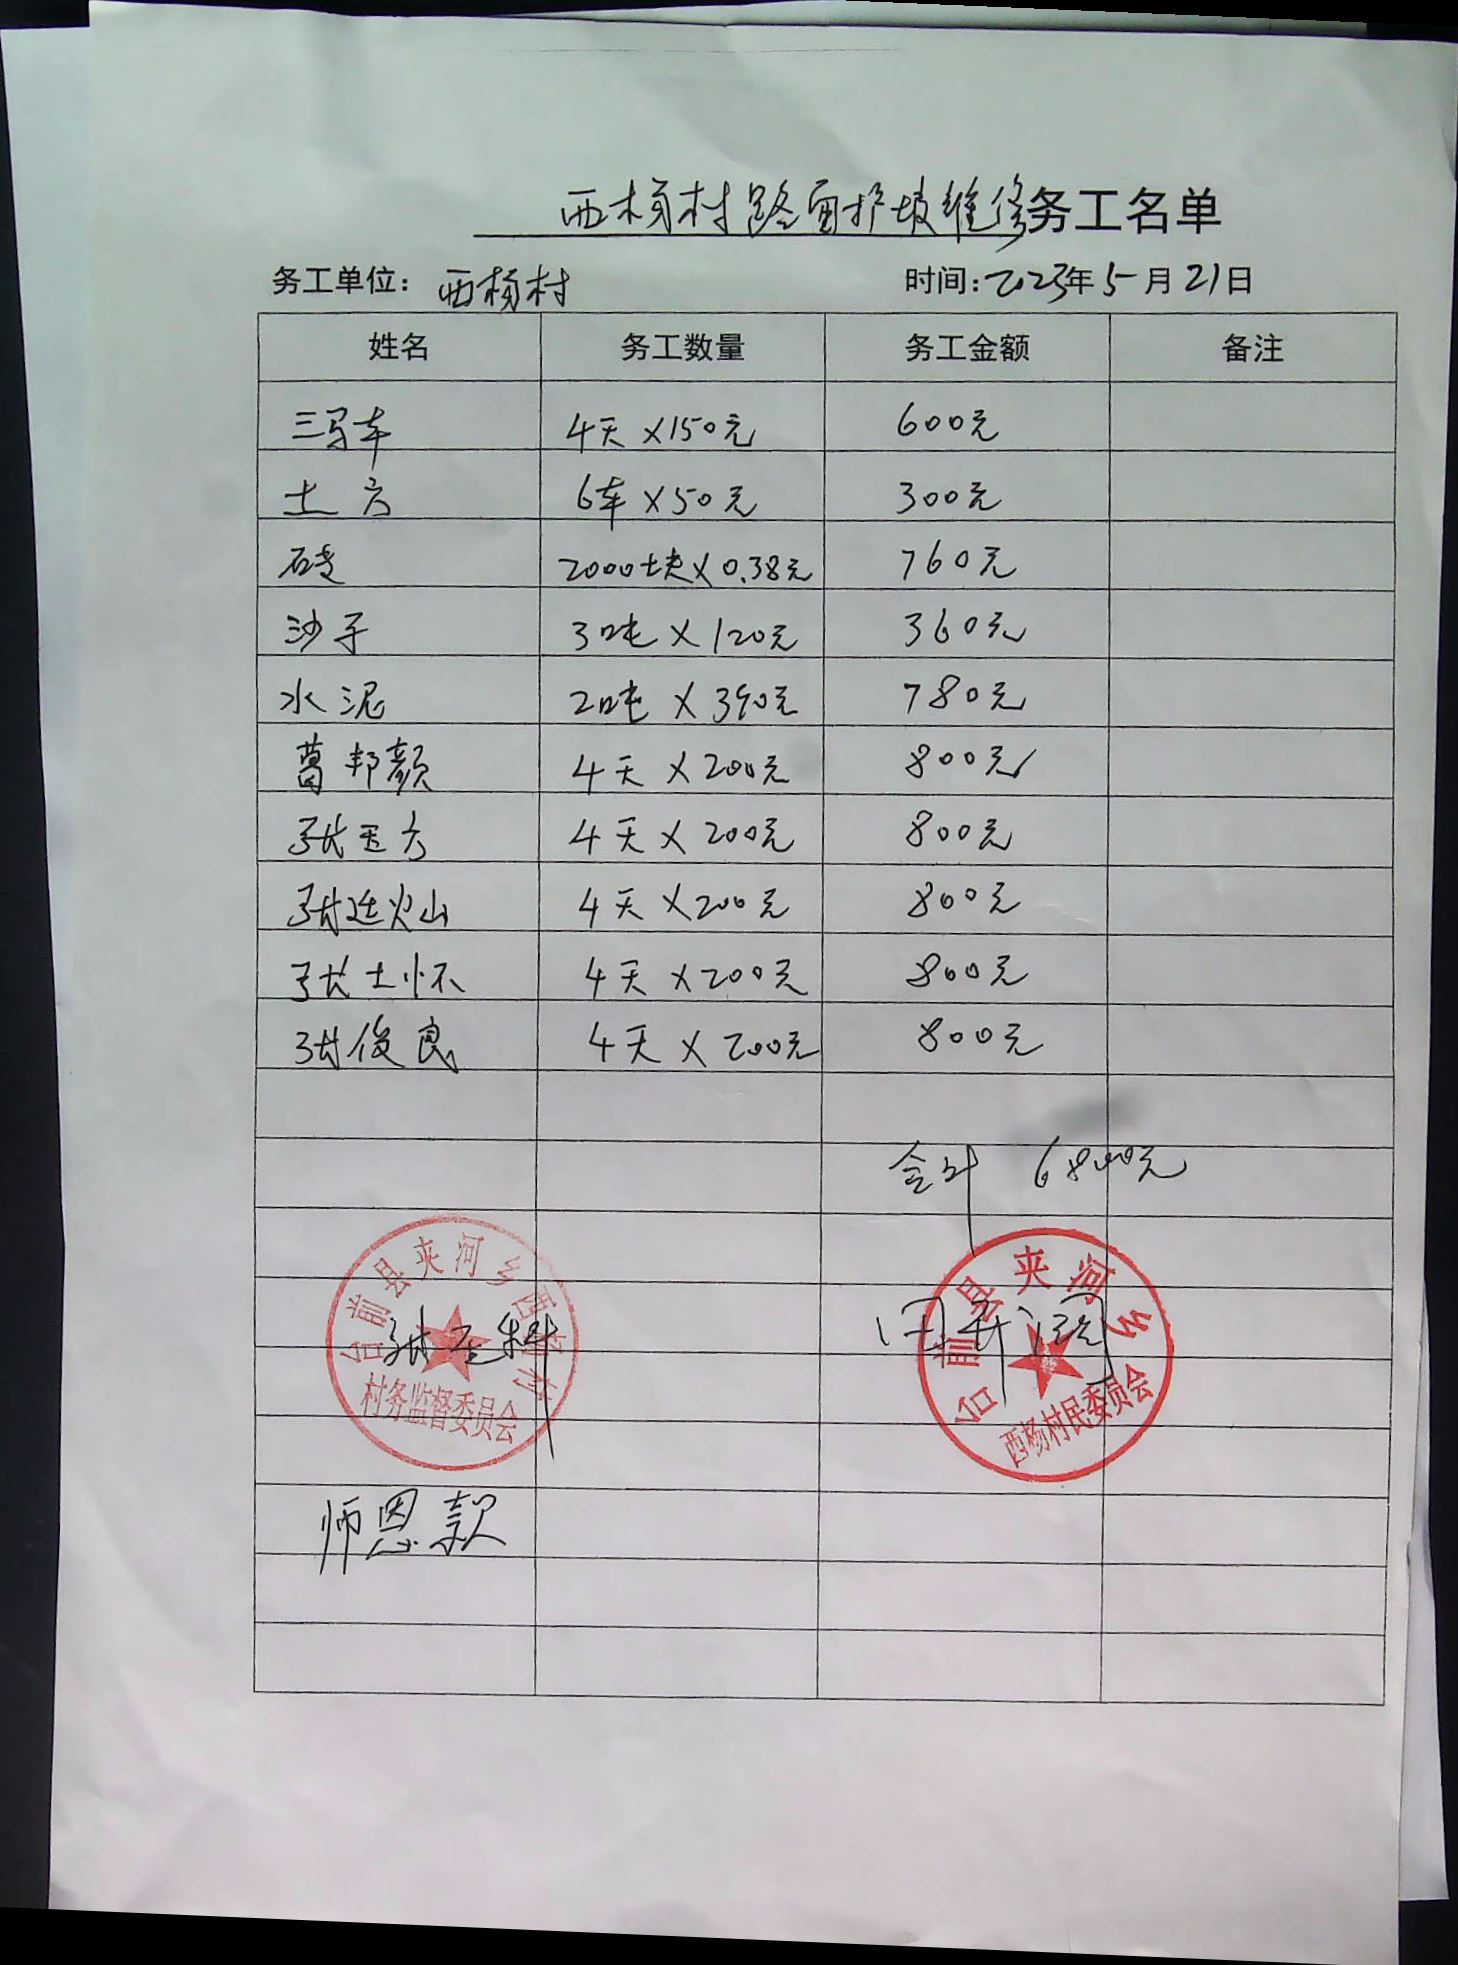 西杨村路面护坡维修务工名单
务工单位：西杨村 时间：2023年5月21日
姓名 务工数量 务工金额 备注
三马车 4天×150元 600元
土方 6车×50元 300元
砖 2000块×0.38元 760元
沙子 3吨×120元 360元
水泥 2吨×390元 780元
葛邦颜 4天×200元 800元
张玉方 4天×200元 800元
张廷火山 4天×200元 800元
张士怀 4天×200元 800元
张俊良 4天×200元 800元
合计 6800元
台前县夹河乡西杨村
村务监督委员会
台前县夹河乡
西杨村民委员会
师恩款